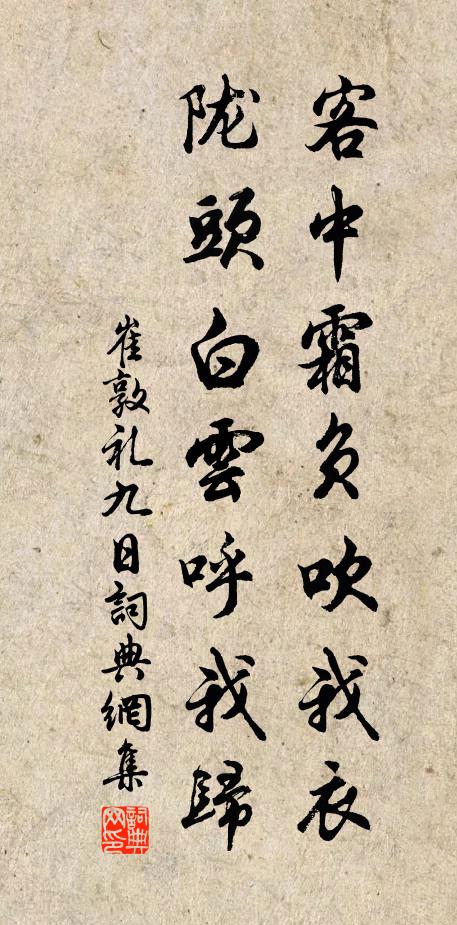 客中霜负吹我衣
陇頭白雲呼我歸
崔敦礼九日詞典網集
詞典
网印